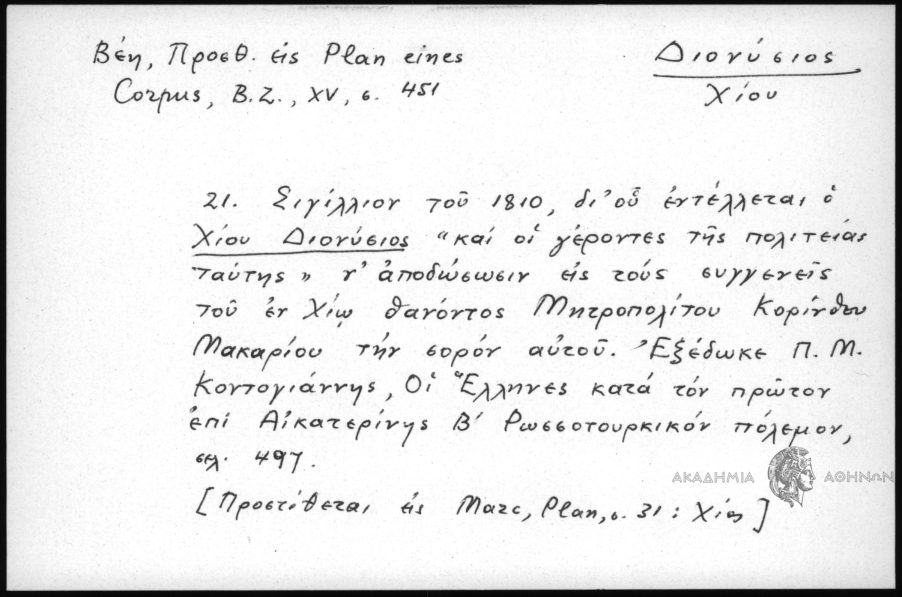 Βέη, Προσθ. εἰς Plan eines
Corpus, B.Z., XV, σ. 451
Διονύσιος
Χίου
21. Σιγίλλιον τοῦ 1810, δι' οὗ ἐντέλλεται ὁ
Χίου Διονύσιος "καί οἱ γέροντες τῆς πολιτείας
ταύτης" ν' ἀποδώσωσιν εἰς τούς συγγενεῖς
τοῦ ἐν Χίῳ θανόντος Μητροπολίτου Κορίνθου
Μακαρίου τήν σορόν αὐτοῦ. Ἐξέδωκε Π. Μ.
Κοντογιάννης, Οἱ Ἕλληνες κατά τόν πρῶτον
ἐπί Αἰκατερίνης Β' Ρωσσοτουρκικόν πόλεμον,
σελ. 497.
ΑΚΑΔΗΜΙΑ ΑΘΗΝΩΝ
[Προστίθεται εἰς Marc, Plan, σ. 31 : Χίος]